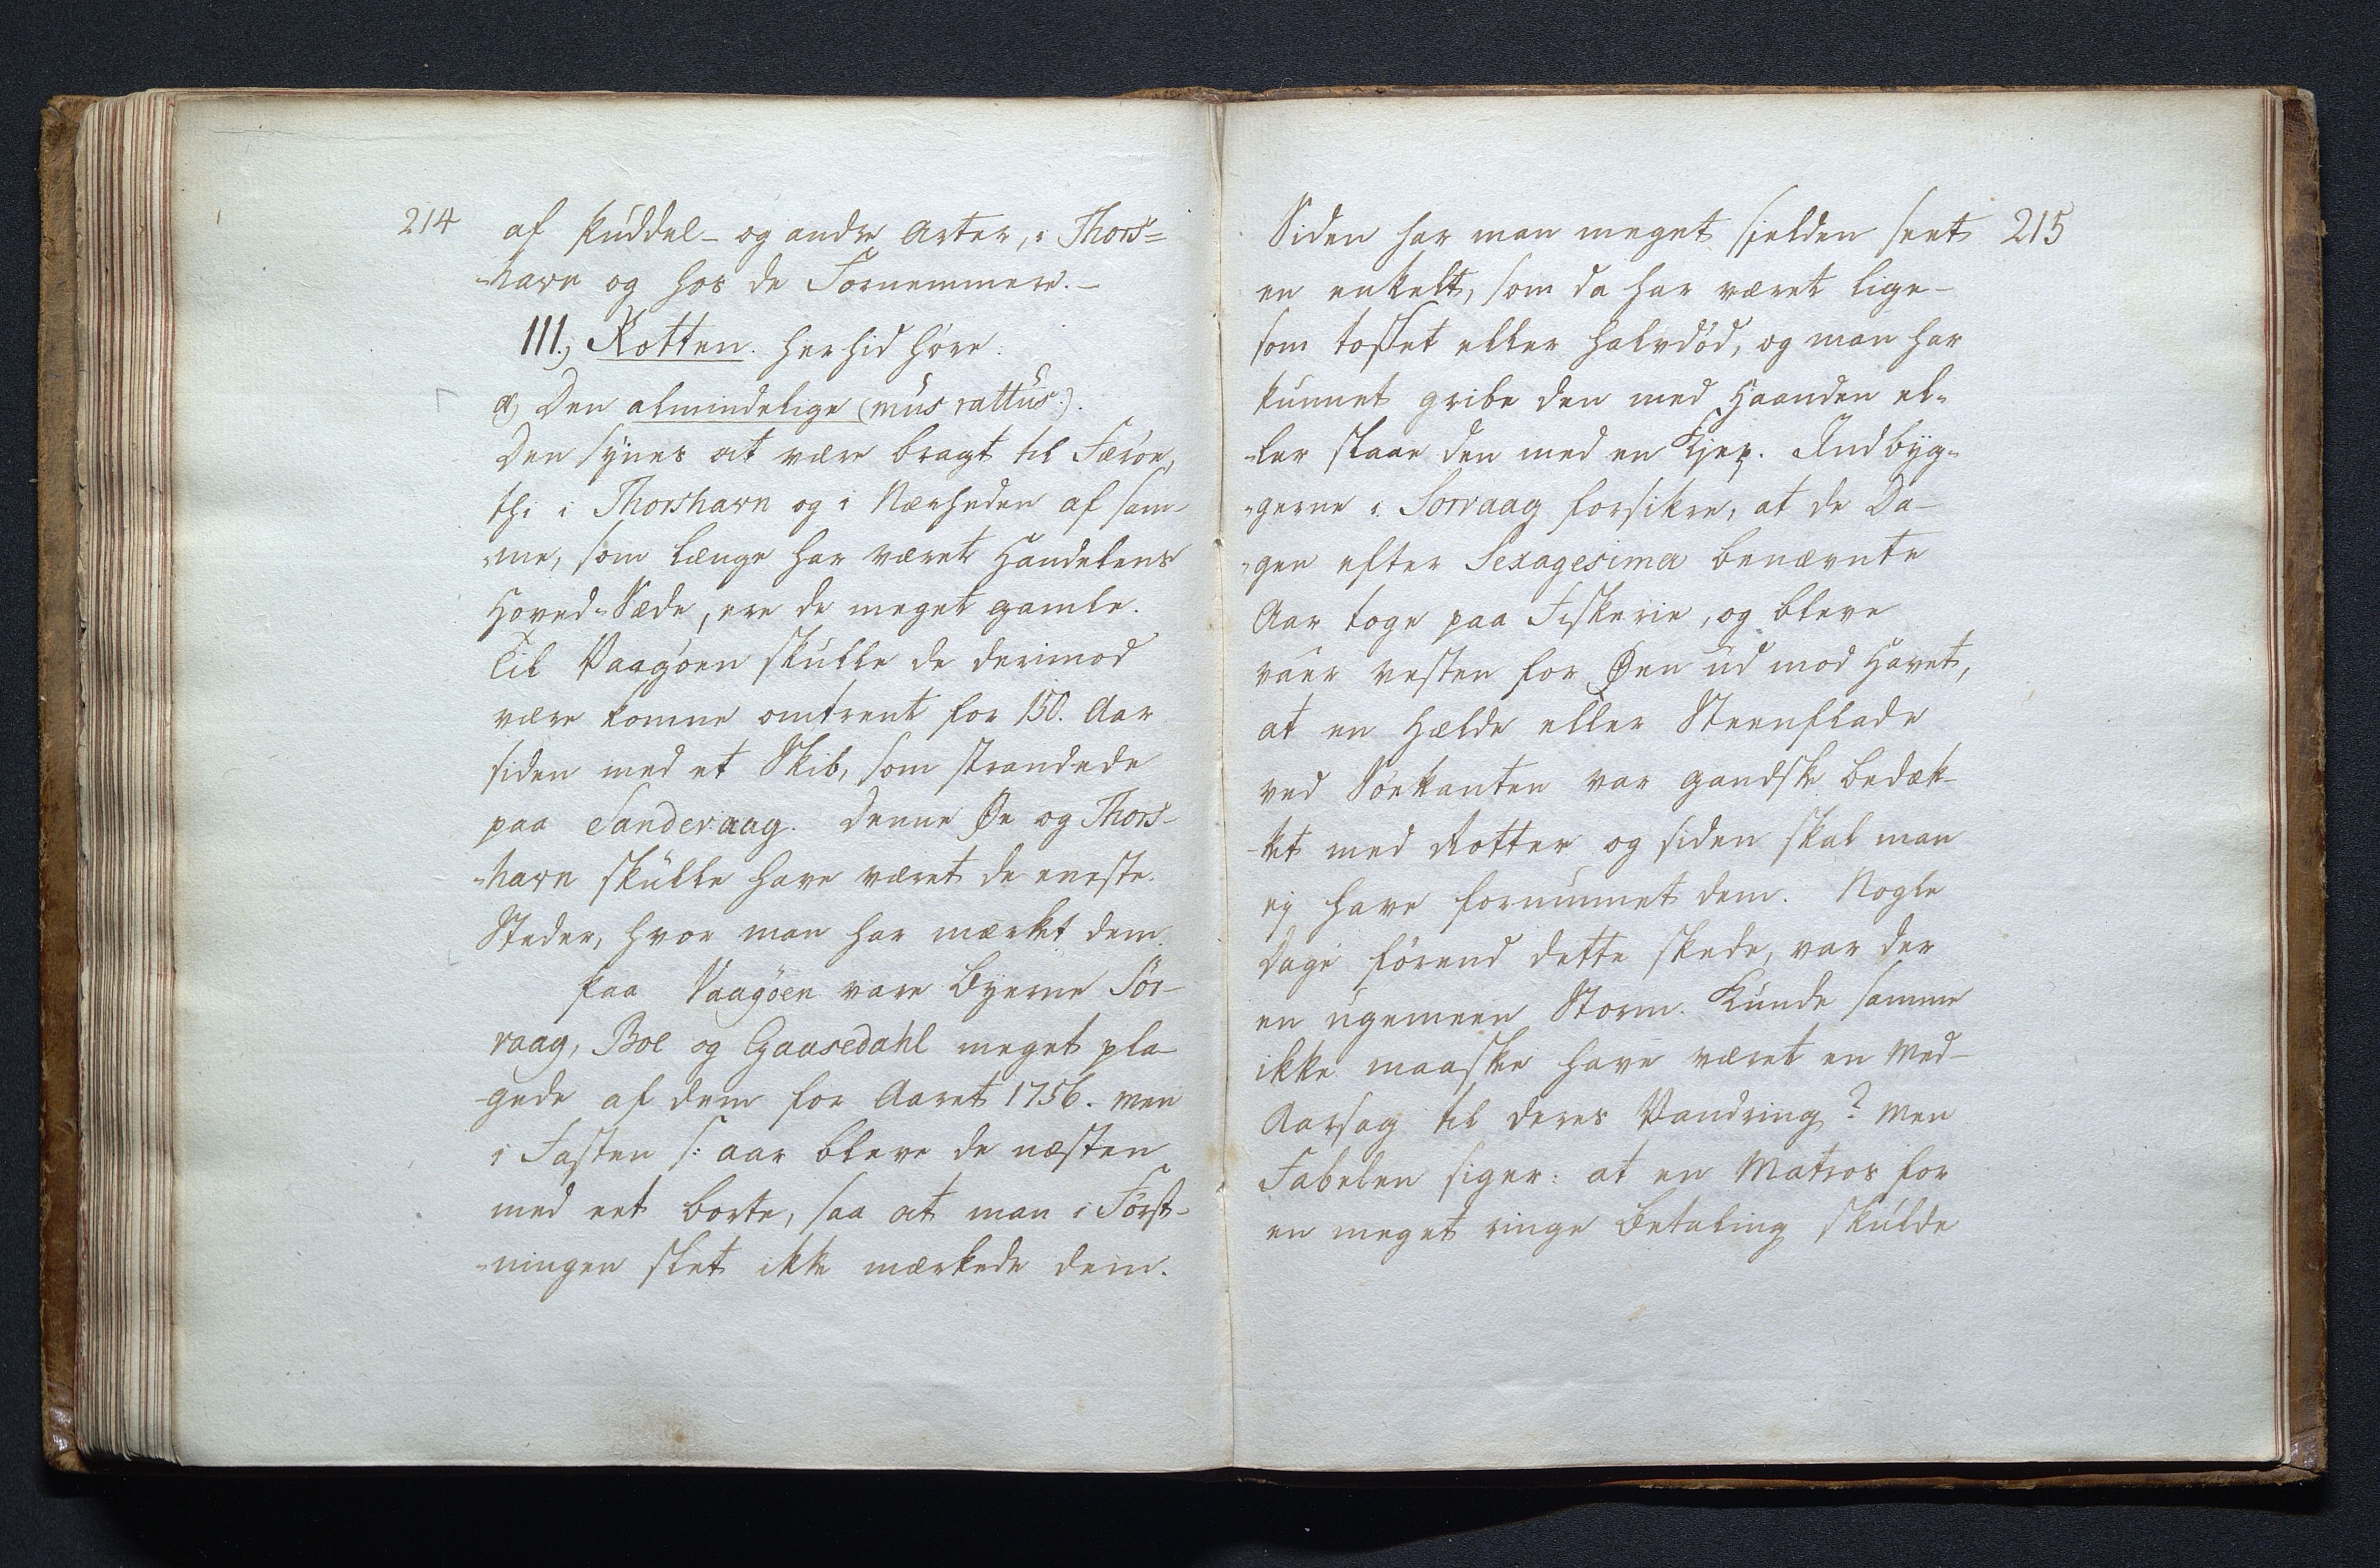 214
af Puddel- og andre Arter, i Thors=
-havn og hos de Fornemmere. -
III.) Rotten. Herhid høre:
a) Den almindelige (mus rattus).
Den synes at være bragt til Færöe,
thi i Thorshavn og i Nærheden af sam-
-me, som længe har været Handelens
Hoved-Sæde, ere de meget gamle.
Til Vaagöen skulle de derimod
være komne omtrent for 150. Aar
siden med et Skib, som strandede
paa Sandevaag. Denne Øe og Thors-
-havn skulle have været de eneste
Steder, hvor man har mærket dem.
Paa Vaagöen vare Byerne Sör-
vaag, Boe og Gaasedahl meget pla-
-gede af dem for Aaret 1756. men
i Fasten s: aar bleve de næsten
med eet borte, saa at man i Först-
-ningen slet ikke mærkede dem.
215
Siden har man meget sjelden seet
en enkelt, som da har været lige-
som tosset eller halvdöd, og man har
kunnet gribe den med Haanden el-
-ler slaae den med en Kjep. Indbyg-
-gerne i Sorvaag forsikre, at de Da-
-gen efter Sexagesima benævnte
Aar toge paa Fiskerie, og bleve
vaer vesten for Øen ud mod Havet,
at en Hælde eller Steenflade
ved Söekanten var gandske bedæk-
-ket med Rotter og siden skal man
ej have fornummet dem. Nogle
Dage förend dette skede, var der
en ugemeen Storm. Kunde samme
ikke maaske have været en Med-
Aarsag til deres Vandring? Men
Fabelen siger: at en Matros for
en meget ringe Betaling skulde